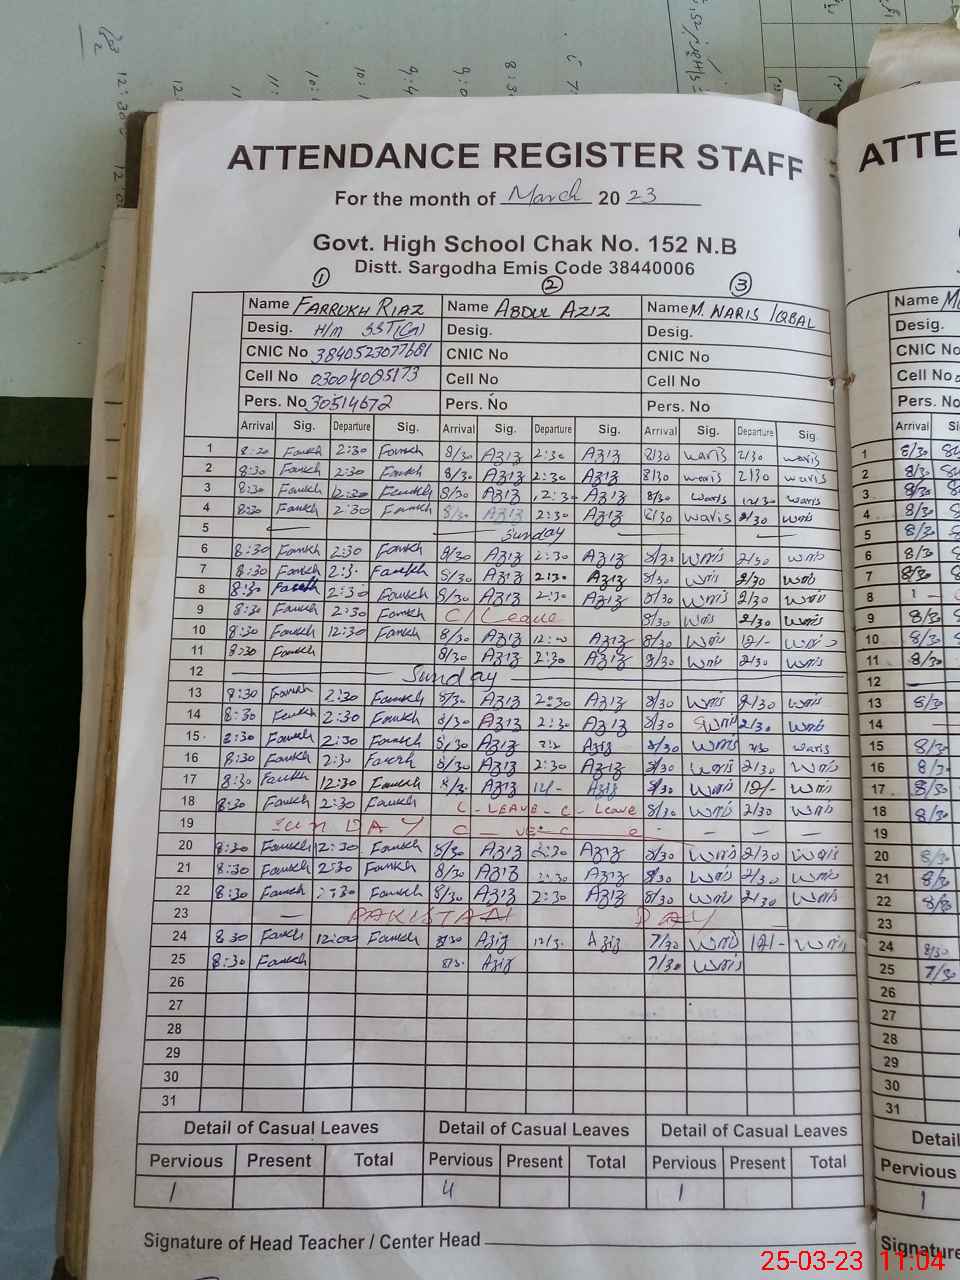 ATTENDANCE REGISTER STAFF
For the month of March 20 23
Govt. High School Chak No. 152 N.B
Distt. Sargodha Emis Code 38440006
1 2 3
Name FARRUKH RIAZ Name ABDUL AZIZ Name M. WARIS IQBAL
Desig. H/M SST(Gn) Desig. Desig.
CNIC No 3840523077681 CNIC No CNIC No
Cell No 03004085173 Cell No Cell No
Pers. No 30514672 Pers. No Pers. No
Arrival Sig. Departure Sig. Arrival Sig. Departure Sig. Arrival Sig. Departure Sig.
1 8:30 Farrukh 2:30 Farrukh 8/30 Aziz 2:30 Aziz 8/30 waris 2/30 waris
2 8:30 Farrukh 2:30 Farrukh 8/30 Aziz 2:30 Aziz 8/30 waris 2/30 waris
3 8:30 Farrukh 12:30 Farrukh 8/30 Aziz 12:30 Aziz 8/30 waris 12/30 waris
4 8:30 Farrukh 2:30 Farrukh 8/30 Aziz 2:30 Aziz 8/30 waris 2/30 waris
5 Sunday
6 8:30 Farrukh 2:30 Farrukh 8/30 Aziz 2:30 Aziz 8/30 waris 2/30 waris
7 8:30 Farrukh 2:3. Farrukh 8/30 Aziz 2:30 Aziz 8/30 waris 2/30 waris
8 8:30 Farrukh 2:30 Farrukh 8/30 Aziz 2:30 Aziz 8/30 waris 2/30 waris
9 8:30 Farrukh 2:30 Farrukh C/Leave 8/30 waris 2/30 waris
10 8:30 Farrukh 12:30 Farrukh 8/30 Aziz 12:00 Aziz 8/30 waris 12/- waris
11 8:30 Farrukh 8/30 Aziz 2:30 Aziz 8/30 waris 2/30 waris
12 Sunday
13 8:30 Farrukh 2:30 Farrukh 8/30 Aziz 2:30 Aziz 8/30 waris 2/30 waris
14 8:30 Farrukh 2:30 Farrukh 8/30 Aziz 2:30 Aziz 8/30 waris 2/30 waris
15 8:30 Farrukh 2:30 Farrukh 8/30 Aziz Aziz 8/30 waris 2/30 waris
16 8:30 Farrukh 2:30 Farrukh 8/30 Aziz 2:30 Aziz 8/30 waris 2/30 waris
17 8:30 Farrukh 12:30 Farrukh Aziz 12/- Aziz 8/30 waris 12/- waris
18 8:30 Farrukh 2:30 Farrukh C-LEAVE-C-Leave 8/30 waris 2/30 waris
19 SUNDAY
20 8:30 Farrukh 12:30 Farrukh 8/30 Aziz 2:30 Aziz 8/30 waris 2/30 waris
21 8:30 Farrukh 2:30 Farrukh 8/30 Aziz 2:30 Aziz 8/30 waris 2/30 waris
22 8:30 Farrukh 2:30 Farrukh 8/30 Aziz 2:30 Aziz 8/30 waris 2/30 waris
23 PAKISTAN DAY
24 8:30 Farrukh 12:00 Farrukh 8/30 Aziz 12/3. Aziz 7/30 waris 12/- waris
25 8:30 Farrukh Aziz 7/30 waris
26
27
28
29
30
31
Detail of Casual Leaves Detail of Casual Leaves Detail of Casual Leaves
Pervious Present Total Pervious Present Total Pervious Present Total
1 4 1
Signature of Head Teacher / Center Head
ATTE
Name
Desig.
CNIC No
Cell No
Pers. No
Arrival
1 8/30
2 8/30
3 8/30
4 8/30
5 8/30
6 8/30
7 8/30
8
9 8/30
10 8/30
11 8/30
12
13 8/30
14
15 8/30
16 8/3
17 8/30
18 8/30
19
20 8/30
21 8/30
22 8/30
23
24 8/30
25 7/30
26
27
28
29
30
31
Detail
Pervious
1
Signature
25-03-23 11:04